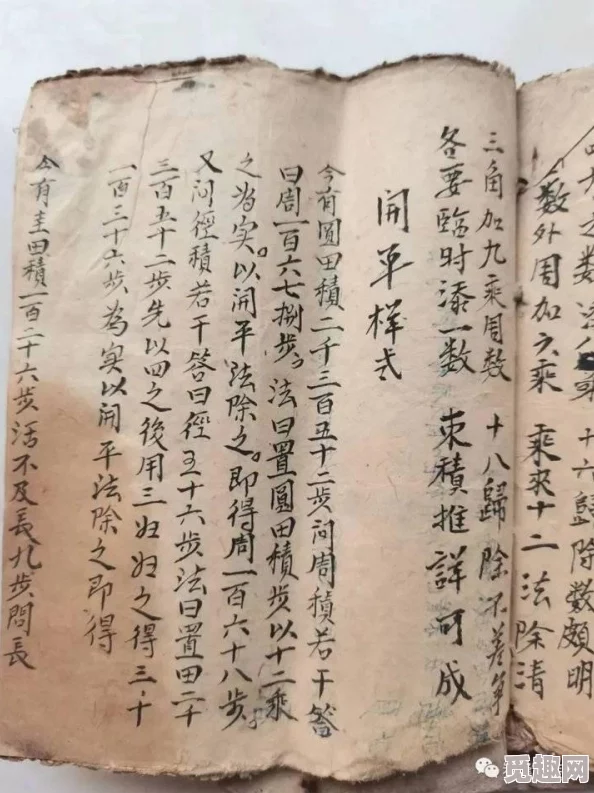 之 十六歸除數頗明
數外周加六乘 乘來十二法除清
三角加九乘周數 十八歸除不差爭
各要臨時添一數 束積推詳可成
開平樣式
今有圓田積二千三百五十二步问周積若干答
曰周一百六七捌步法曰置圓田積步以十二乘
之為实。以開平法除之。即得周一百六十八步。
又问徑積若干答曰徑五十六步法曰置田二千
三百五十二步先以四之後用三妇妇之得三千
一百三十六步為实以開平法除之即得
今有圭田積一百二十六步活不及長九步問長
觅趣网